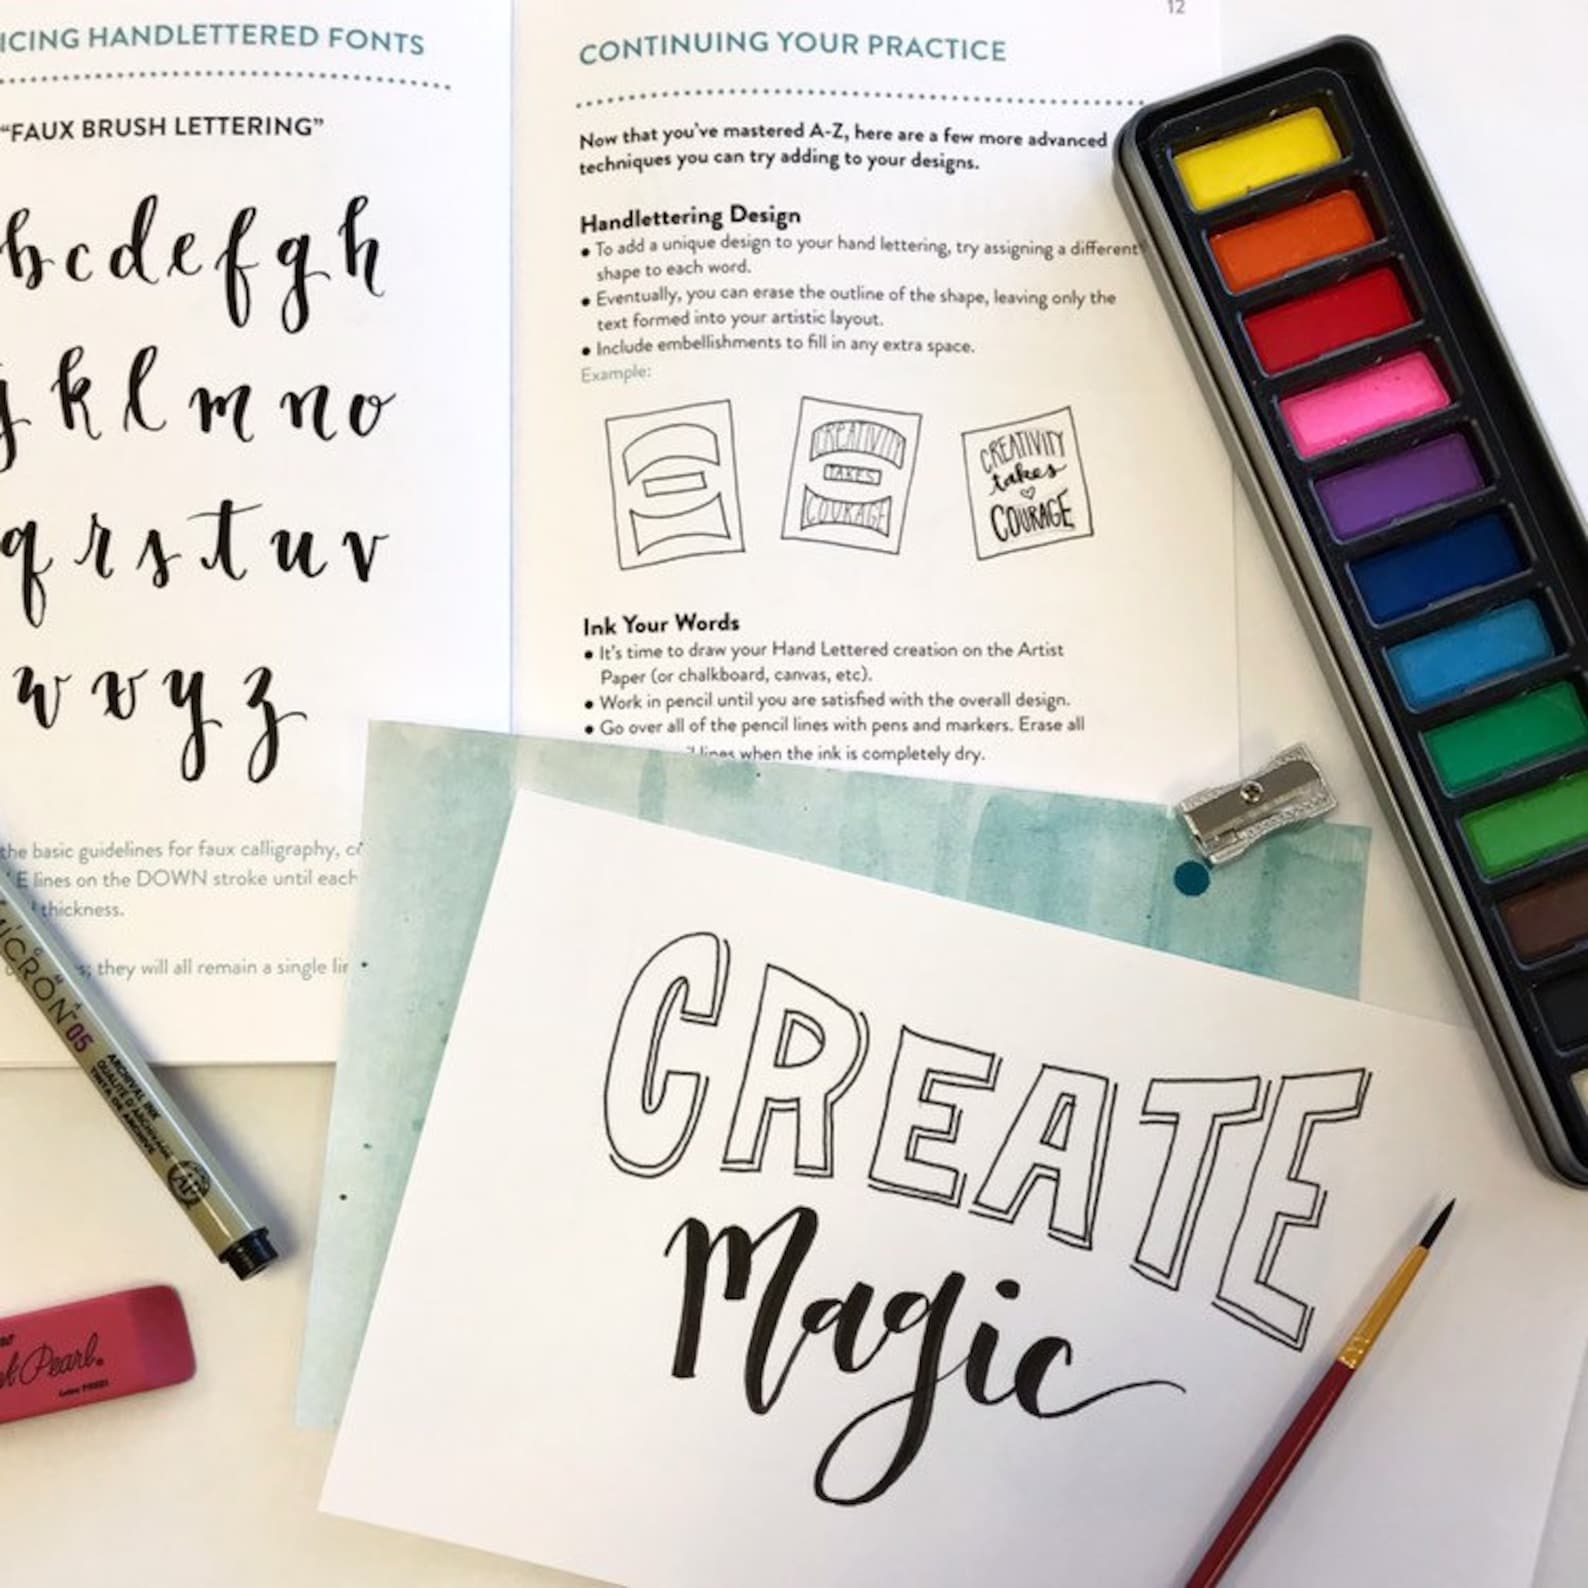 ICING HANDLETTERED FONTS
“FAUX BRUSH LETTERING”
b c d e f g h
j k l m n o
q r s t u v
w x y z
the basic guidelines for faux calligraphy,
E lines on the DOWN stroke until each
thickness.
they will all remain a single
12
CONTINUING YOUR PRACTICE
Now that you’ve mastered A-Z, here are a few more advanced
techniques you can try adding to your designs.
Handlettering Design
• To add a unique design to your hand lettering, try assigning a different
shape to each word.
• Eventually, you can erase the outline of the shape, leaving only the
text formed into your artistic layout.
• Include embellishments to fill in any extra space.
Example:
CREATIVITY
TAKES
COURAGE
CREATIVITY
takes
COURAGE
Ink Your Words
• It’s time to draw your Hand Lettered creation on the Artist
Paper (or chalkboard, canvas, etc).
• Work in pencil until you are satisfied with the overall design.
• Go over all of the pencil lines with pens and markers. Erase all
lines when the ink is completely dry.
MICRON 05
ARCHIVAL INK
QUALITÉ D'ARCHIVAGE
TINTA DE ARCHIVE
AP
Pearl®
Latex FREE!
CREATE
Magic